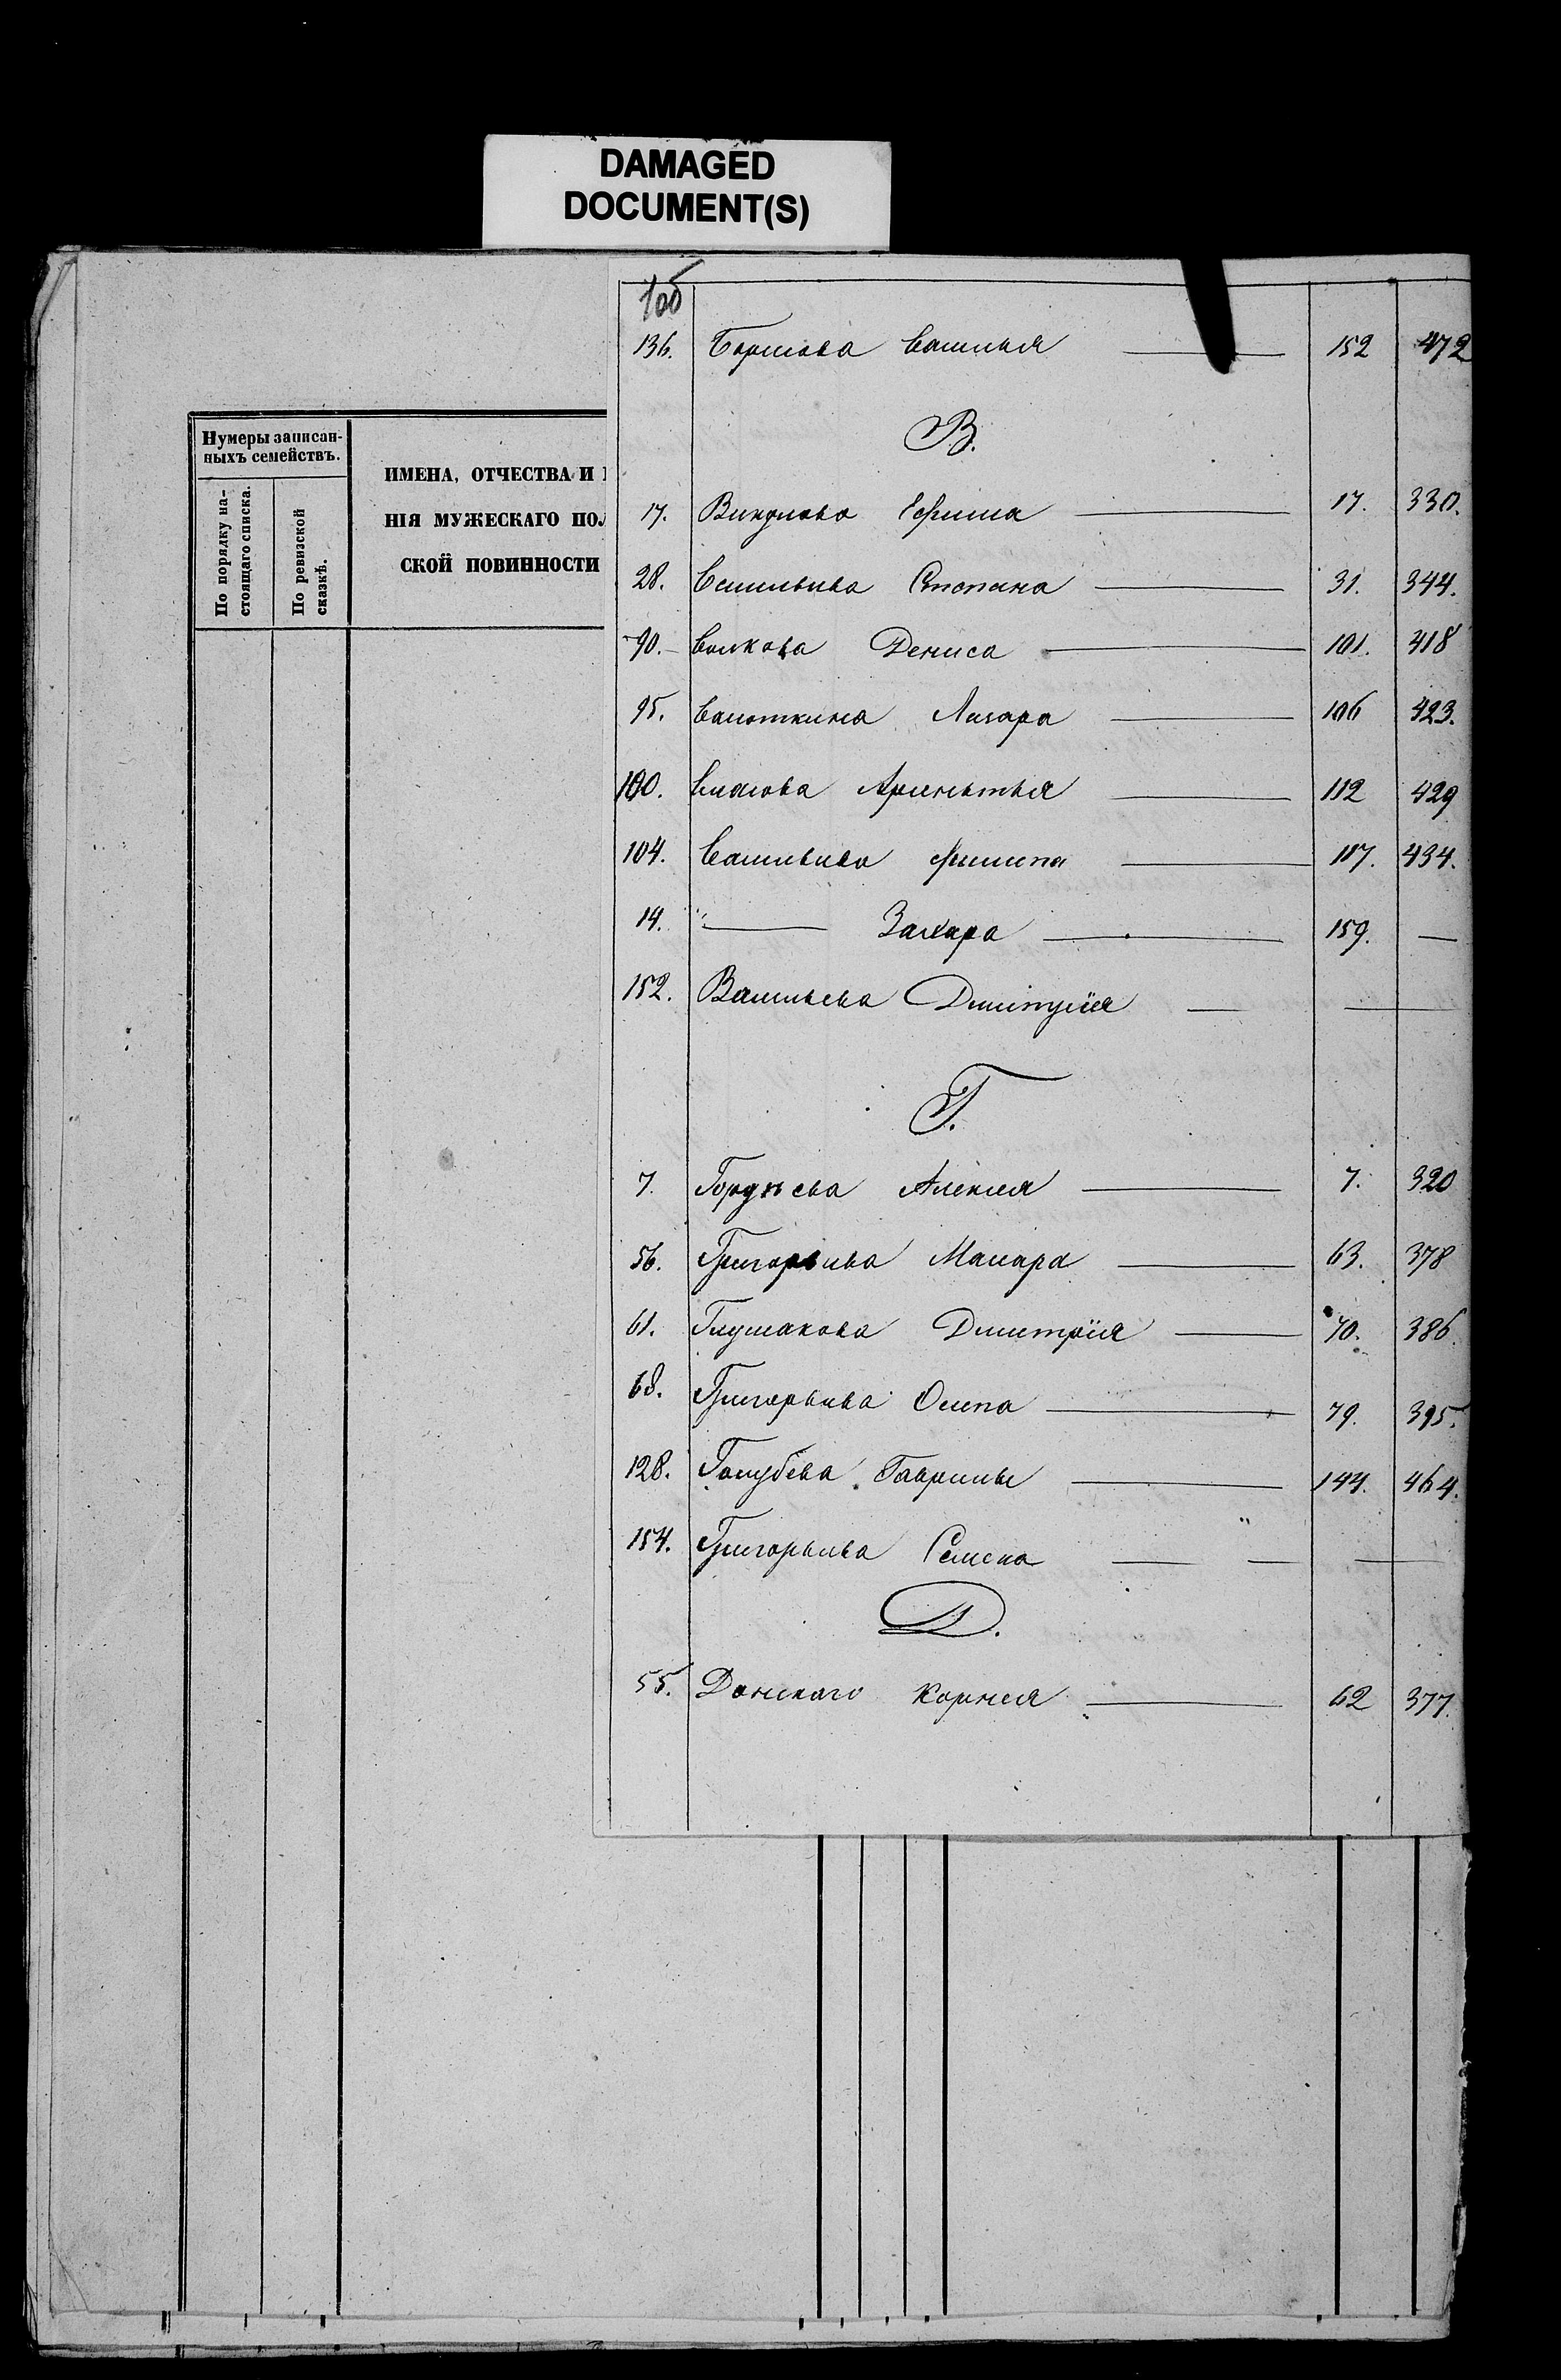 DAMAGED
DOCUMENT(S)
Нумеры записан-
ныхъ семействъ.
По порядку на-
стоящаго списка.
По ревизской
сказкѣ.
ИМЕНА, ОТЧЕСТВА И
НІЯ МУЖЕСКАГО ПОЛ
СКОЙ ПОВИННОСТИ
136. Василья 152 472
В.
17. Викулова Ефима 17. 330.
28. Васильева Степана 31. 344.
90. Волкова Дениса 101. 418
95. Лазара 106 423.
100. Власова Арсентья 112 429
104. Васильева Филипа 117. 434.
14. " Захара 159. —
152. Васильева Дмитрія
Г.
7. Гордѣева Алексея 7. 320
56. Григорьева Макара 63. 378
61. Глушакова Дмитрія 70. 386
68. Григорьева Осипа 79. 395.
128. Голубева Гаврилы 144. 464.
154. Григорьева Семена "
Д.
55. Донскаго Корнея 62 377.